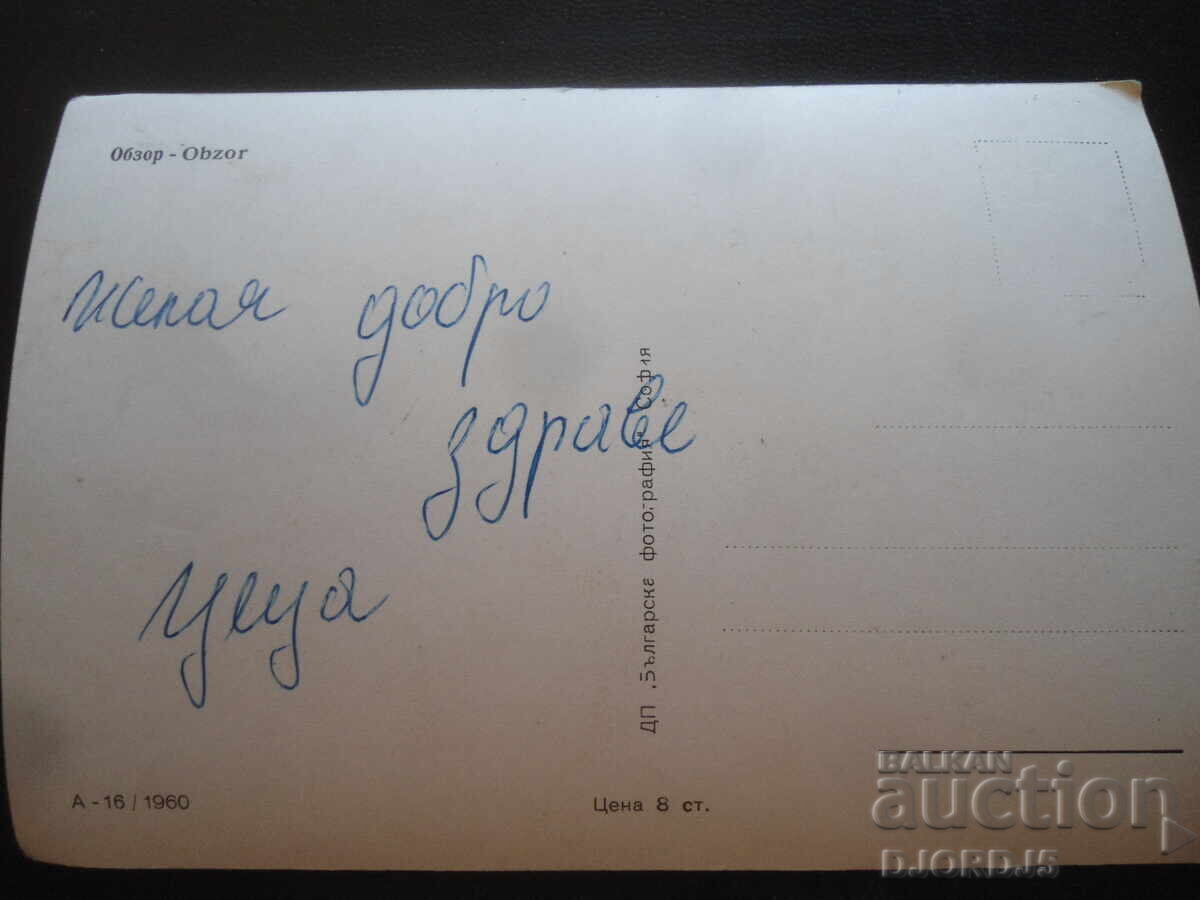 Обзор - Obzor
желая добро
здраве
Цеца
ДП „Българска фотография" София
А - 16 / 1960
Цена 8 ст.
BALKAN
auction
DJORDJ5